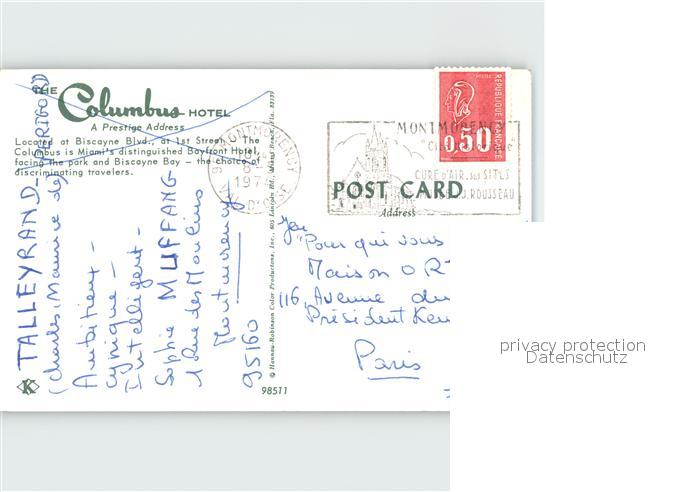 THE Columbus HOTEL
A Prestige Address
Located at Biscayne Blvd., at 1st Street. The
Columbus is Miami's distinguished Bayfront Hotel,
facing the park and Biscayne Bay – the choice of
discriminating travelers.
TALLEYRAND-PERIGORD
(Charles, Maurice de)
Ambitieux -
Cynique -
Intelligent -
Sophie MUFFANG
1 Rue des Moulins
Montmorency
95160
© Hannau-Robinson Color Productions, Inc., 805 Lincoln Rd., Miami Beach, Fla. 33139
98511
K
MONTMORENCY
MONTMORENCY
CURE d'AIR, ses SITES
J.J. ROUSSEAU
REPUBLIQUE FRANÇAISE
0,50
POST CARD
Address
Jeu
"Pour qui vous
Maison O R
116, Avenue du
Président Ken
Paris
privacy protection
Datenschutz